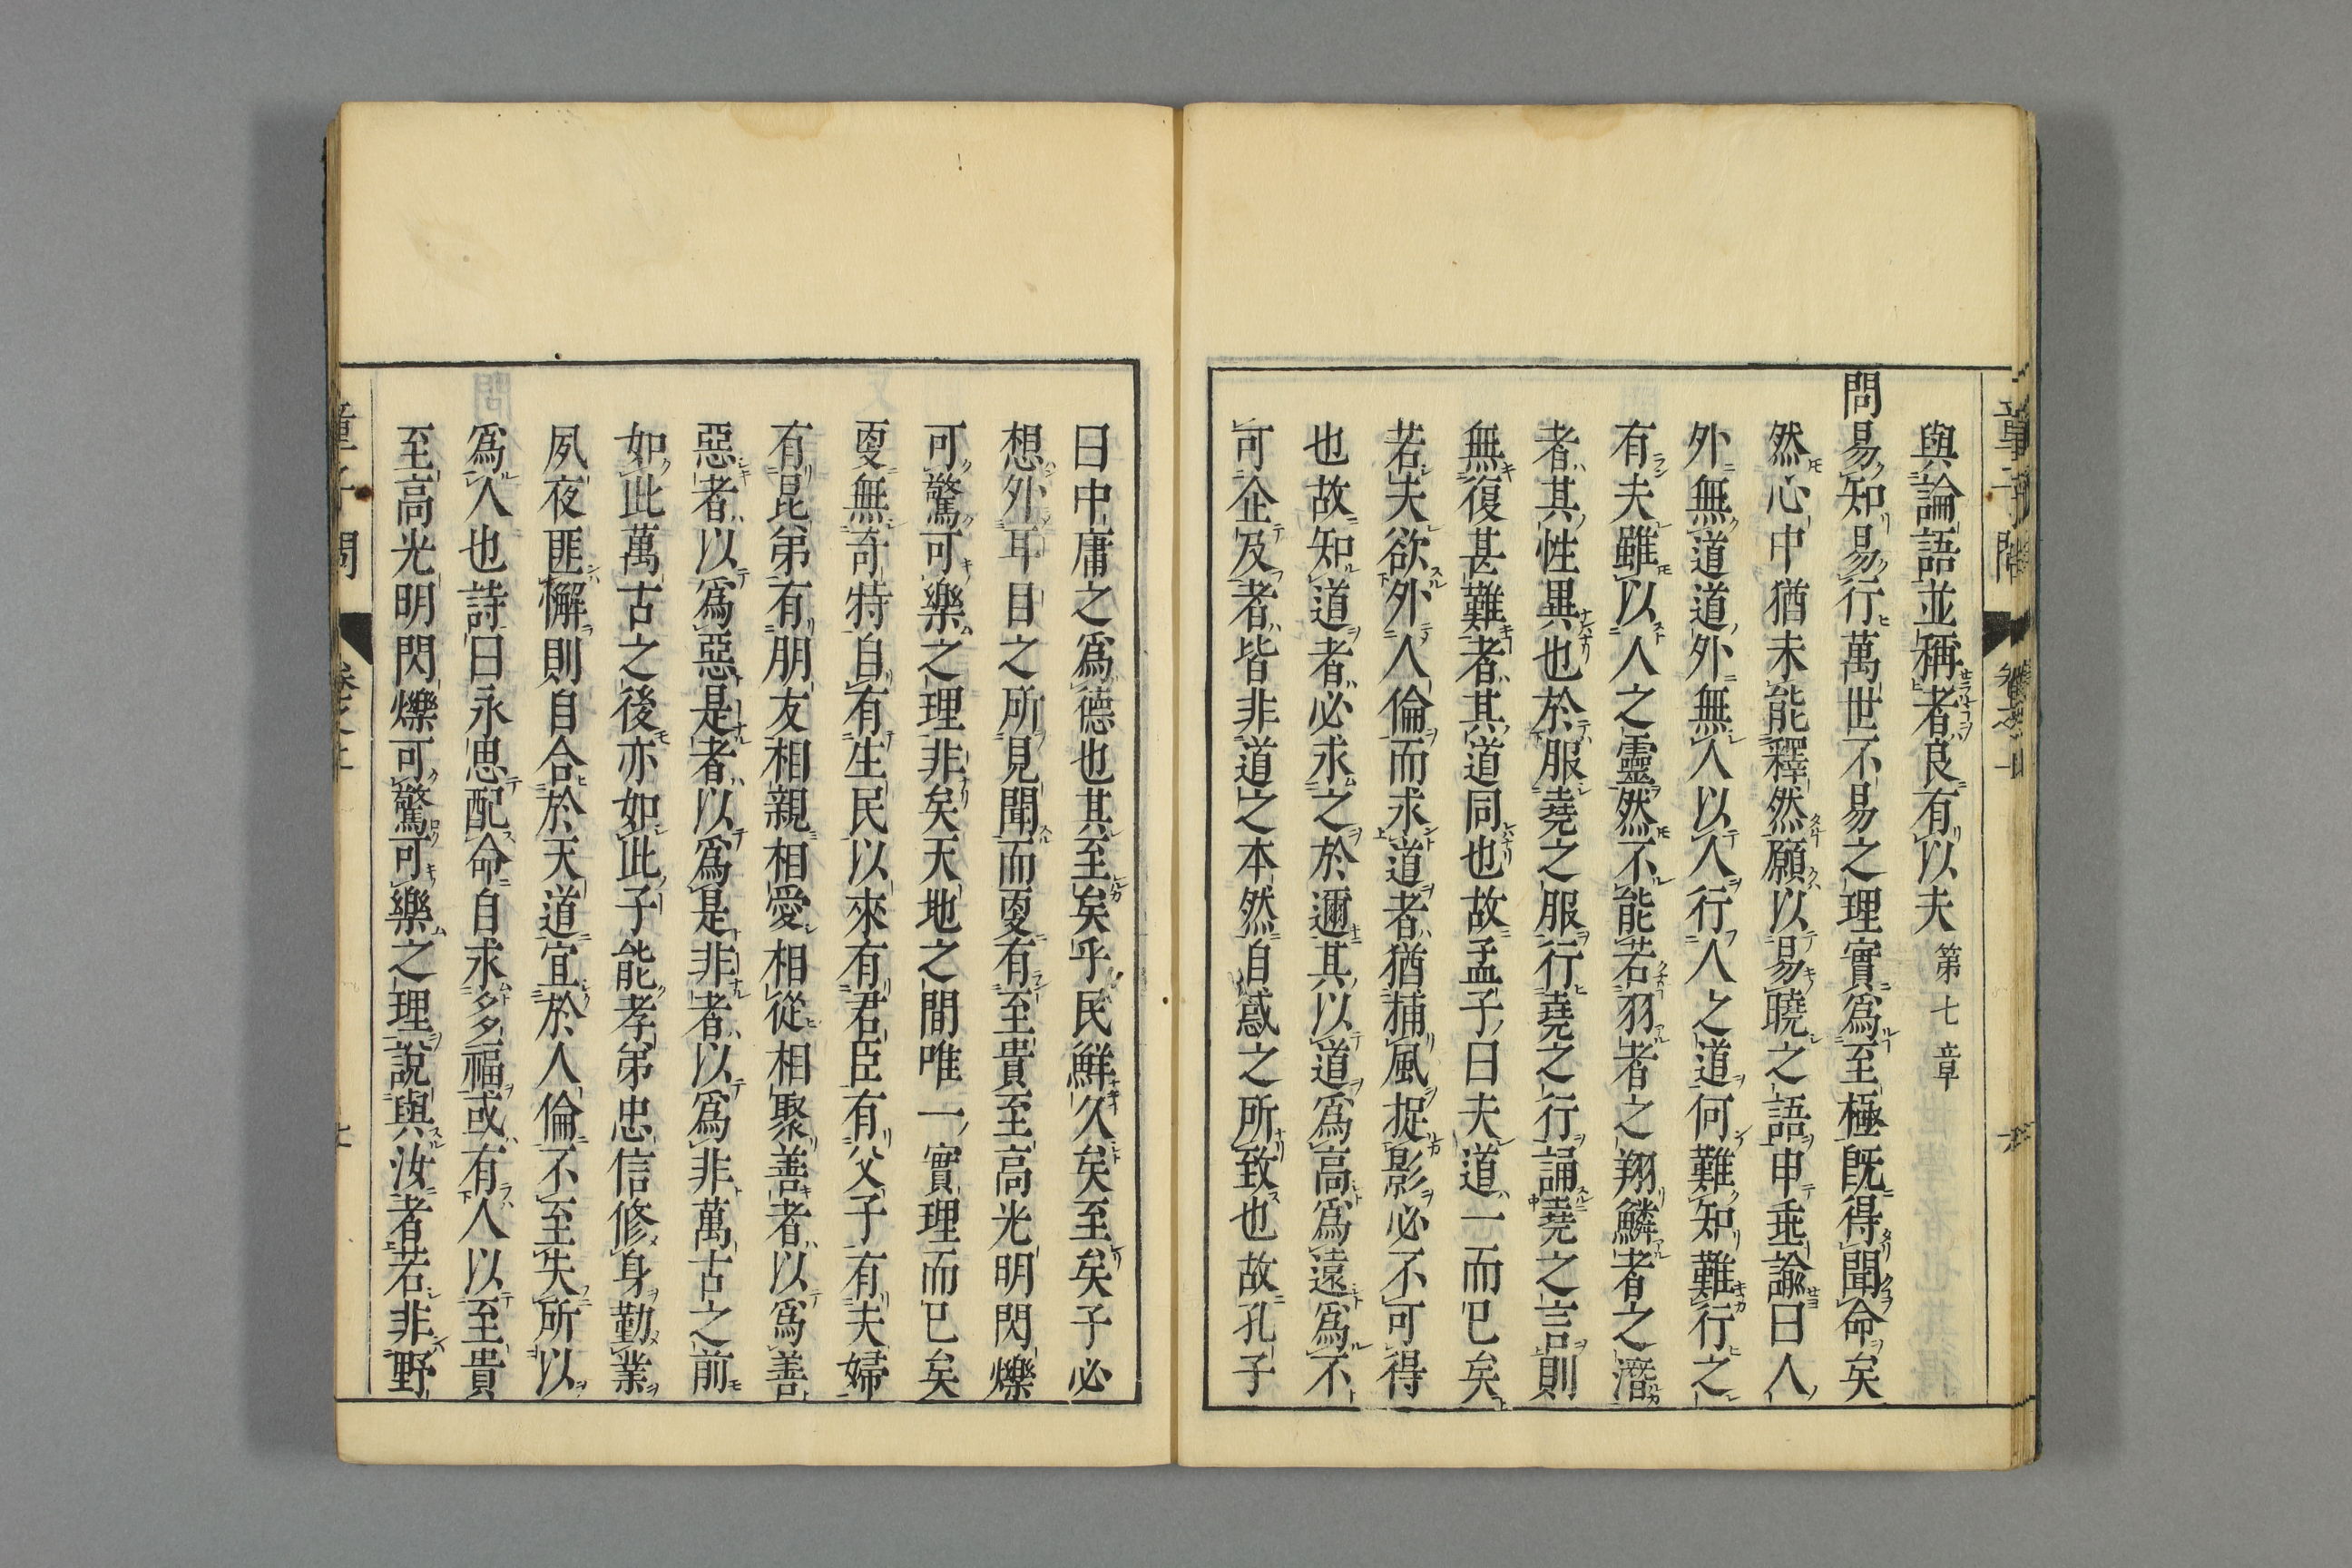 與論語並稱者良有以夫 第七章
問易知易行萬世不易之理實爲至極既得聞命矣
然心中猶未能釋然願以易曉之語申垂諭曰人
外無道道外無人以人行人之道何難知難行之
有夫雖以人之靈然不能若羽者之翔鱗者之潛
者其性異也於服堯之服行堯之行誦堯之言則
無復甚難者其道同也故孟子曰夫道一而已矣
若夫欲外人倫而求道者猶捕風捉影必不可得
也故知道者必求之於邇其以道爲高爲遠爲不
可企及者皆非道之本然自惑之所致也故孔子
曰中庸之爲德也其至矣乎民鮮久矣至矣子必
想外耳目之所見聞而更有至貴至高光明閃爍
可驚可樂之理非矣天地之間唯一實理而已矣
更無奇特自有生民以來有君臣有父子有夫婦
有昆弟有朋友相親相愛相從相聚善者以爲善
惡者以爲惡是者以爲是非者以爲非萬古之前
如此萬古之後亦如此子能孝弟忠信修身勤業
夙夜匪懈則自合於天道宜於人倫不至失所以
爲人也詩曰永思配命自求多福或有人以至貴
至高光明閃爍可驚可樂之理說與汝者若非野
童子問